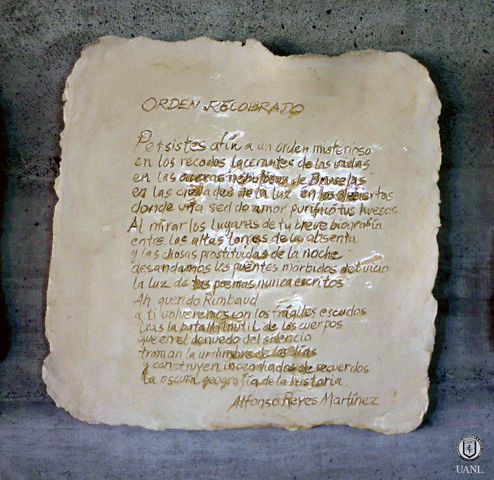 ORDEN RECOBRADO
Persistes afín a un orden misterioso
en los recodos lacerantes de las vidas
en las aceras nebulosas de Bruselas
en las ciudades de la luz en los desiertos
donde una sed de amor purificó tus huesos
Al mirar los lugares de tu breve biografía
entre las altas torres de la absenta
y las chosas prostituidas de la noche
desandamos los puentes mórbidos del vicio
la luz de tus poemas nunca escritos
Ah querido Rimbaud
a ti volveremos con los frágiles escudos
tras la batalla inútil de los cuerpos
que en el denuedo del silencio
traman la urdimbre de los días
y construyen incendiados de recuerdos
la oscura geografía de la historia.
Alfonso Reyes Martínez
UANL